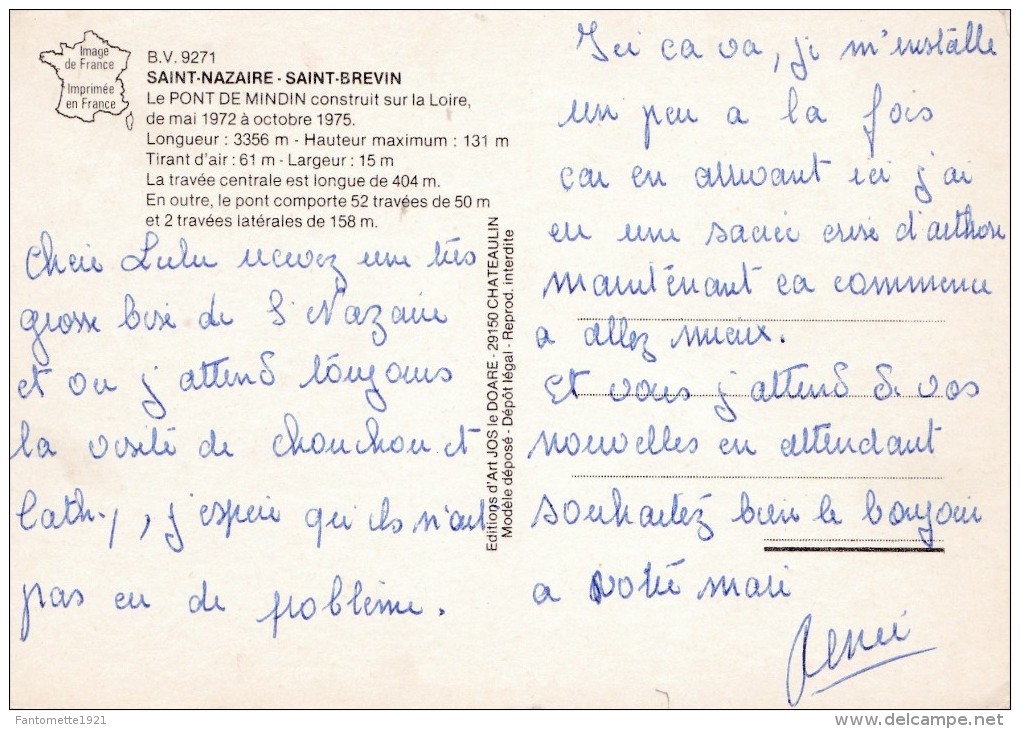 Image
de France
Imprimée
en France
B.V. 9271
SAINT-NAZAIRE - SAINT-BREVIN
Le PONT DE MINDIN construit sur la Loire,
de mai 1972 à octobre 1975.
Longueur : 3356 m - Hauteur maximum : 131 m
Tirant d'air : 61 m - Largeur : 15 m
La travée centrale est longue de 404 m.
En outre, le pont comporte 52 travées de 50 m
et 2 travées latérales de 158 m.
Cherie Lulu recevez une très
grosse bise de S Nazaire
et ou j'attend toujours
la visite de chouchou et
Cathy, j'espère qui ils n'ont
pas eu de problème.
Editions d'Art JOS le DOARE - 29150 CHATEAULIN
Modèle déposé - Dépôt légal - Reprod. interdite
Ici ca va, je m'installe
un peu a la fois
car en arrivant ici j'ai
eu une sacrée crise d'arthrose
maintenant ca commence
a allez mieux.
Et vous j'attend de vos
nouvelles en attendant
souhaitez bien le bonjour
a votre mari
FantometTe1921
www.delcampe.net